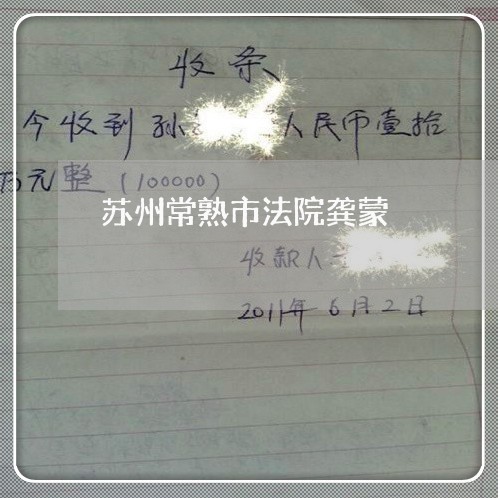 收条
今收到孙 人民币壹拾
万元整（100000）
苏州常熟市法院龚蒙
收款人
2011年6月2日